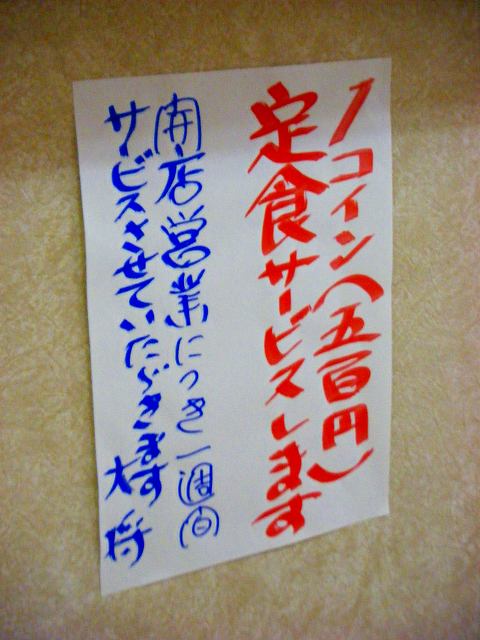 1コイン(五百円)
定食サービスします
開店営業につき一週間
サービスさせていただきます 大将